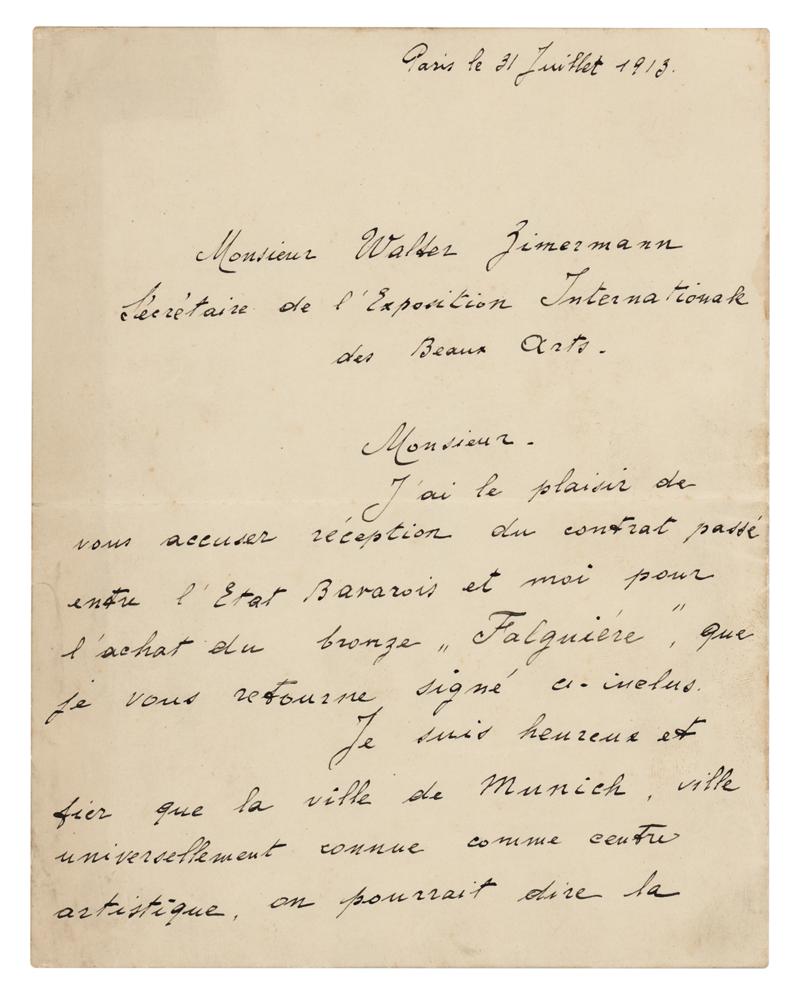 Paris le 31 Juillet 1913.
Monsieur Walter Zimermann
Sécrétaire de l'Exposition Internationale
des Beaux Arts.
Monsieur.
J'ai le plaisir de
vous accuser réception du contrat passé
entre l'Etat Bavarois et moi pour
l'achat du bronze „Falguiére", que
je vous retourne signé ci-inclus.
Je suis heureux et
fier que la ville de Munich, ville
universellement connue comme centre
artistique, on pourrait dire la